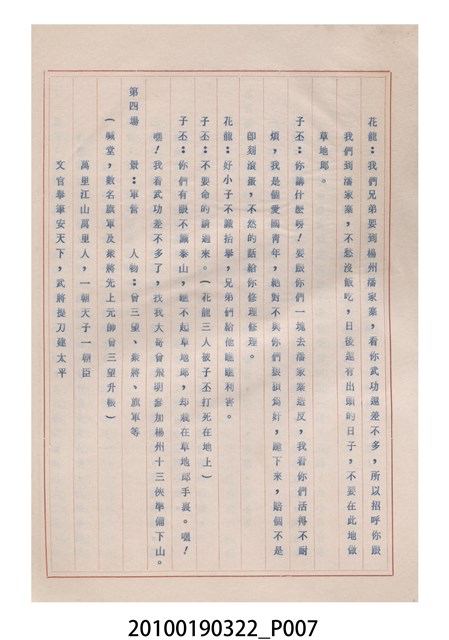 花龍：我們兄弟要到楊州潘家寨，看你武功還差不多，所以招呼你跟
我們到潘家寨，不愁沒飯吃，日後還有出頭的日子，不要在此地做
草地郎。
子丕：你講什麼呀！要跟你們一塊去潘家寨造反，我看你們活得不耐
煩，我是個愛國青年，絕對不與你們狼狽為奸，跪下來，賠個不是
即刻滾蛋，不然的話給你修理修理。
花龍：好小子不識抬舉，兄弟們給他瞧瞧利害。
子丕：不要命的請過來。（花龍三人被子丕打死在地上）
子丕：你們有眼不識泰山，瞧不起草地郎，却栽在草地郎手裏。嘿！
嘿！我看武功差不多了，找我大哥曾飛明參加楊州十三俠準備下山。
第四場　景：軍營　人物：曾三望、衆將、旗軍等
（喊堂，數名旗軍及衆將先上元帥曾三望升帳）
萬里江山萬里人，一朝天子一朝臣
文官舉筆安天下，武將提刀建太平
20100190322_P007